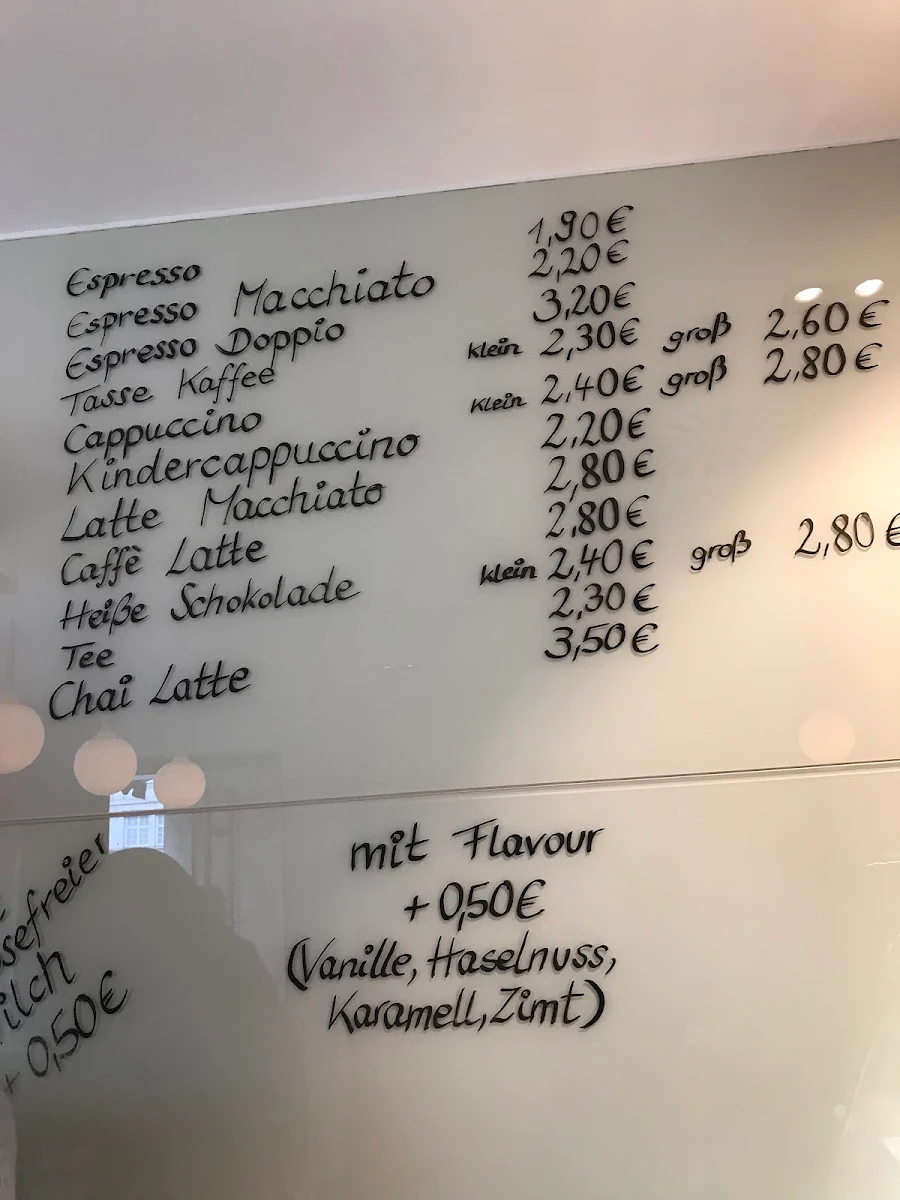 Espresso 1,90€
Espresso Macchiato 2,20€
Espresso Doppio 3,20€
Tasse Kaffee klein 2,30€ groß 2,60€
Cappuccino klein 2,40€ groß 2,80€
Kindercappuccino 2,20€
Latte Macchiato 2,80€
Caffè Latte 2,80€
Heiße Schokolade klein 2,40€ groß 2,80€
Tee 2,30€
Chai Latte 3,50€
mit Flavour
+ 0,50€
(Vanille, Haselnuss,
Karamell, Zimt)
sefreier
ilch
+ 0,50€